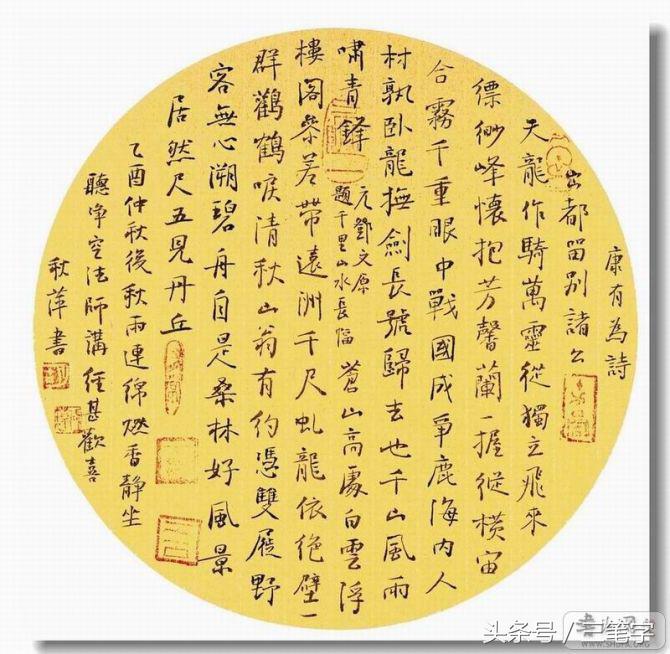 康有為詩
出都留別諸公
天龍作騎萬靈從獨立飛來
縹緲峰懷抱芳馨蘭一握縱橫宙
合霧千重眼中戰國成爭鹿海內人
材孰臥龍撫劍長號歸去也千山風雨
嘯青鋒
元鄧文原
題千里山水長幅
蒼山高處白雲浮
樓閣參差帶遠洲千尺虬龍依絕壁一
群鸛鶴唳清秋山翁有約憑雙屐野
客無心溯碧舟自是桑林好風景
居然尺五見丹丘
乙酉仲秋後秋雨連綿燃香靜坐
聽淨空法師講經甚歡喜
秋萍書
头条号/三笔字